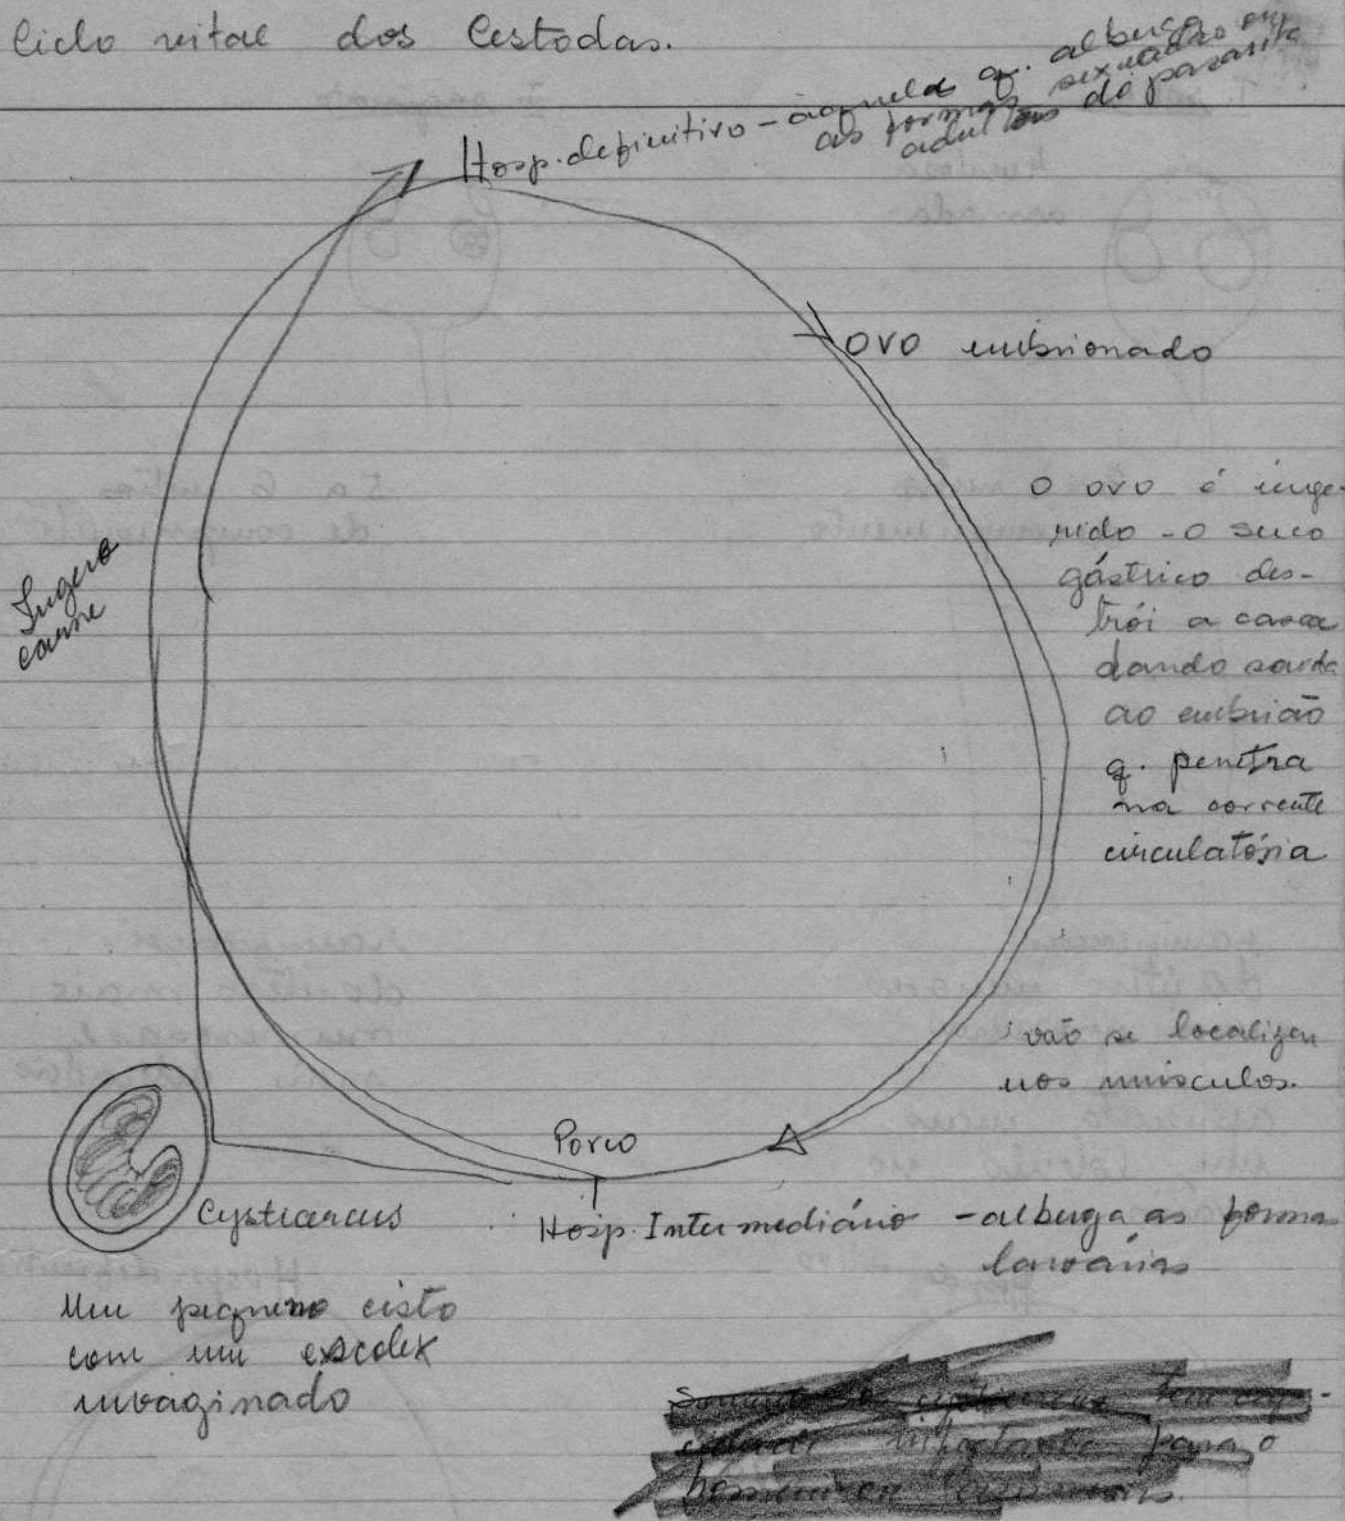 Ciclo vital dos Cestodas.
Hosp. definitivo - àquele q. alberga
as formas sexuadas ou
adultas do parasita
ovo embrionado
O ovo é inge-
rido - o suco
gástrico des-
trói a casca
dando saida
ao embrião
q. penetra
na corrente
circulatória
vão se localizar
nos músculos.
Ingere
carne
Porco
Hosp. Intermediário - alberga as formas
larvárias
Cysticercus
Um pequeno cisto
com um escolex
invaginado
tem
para o